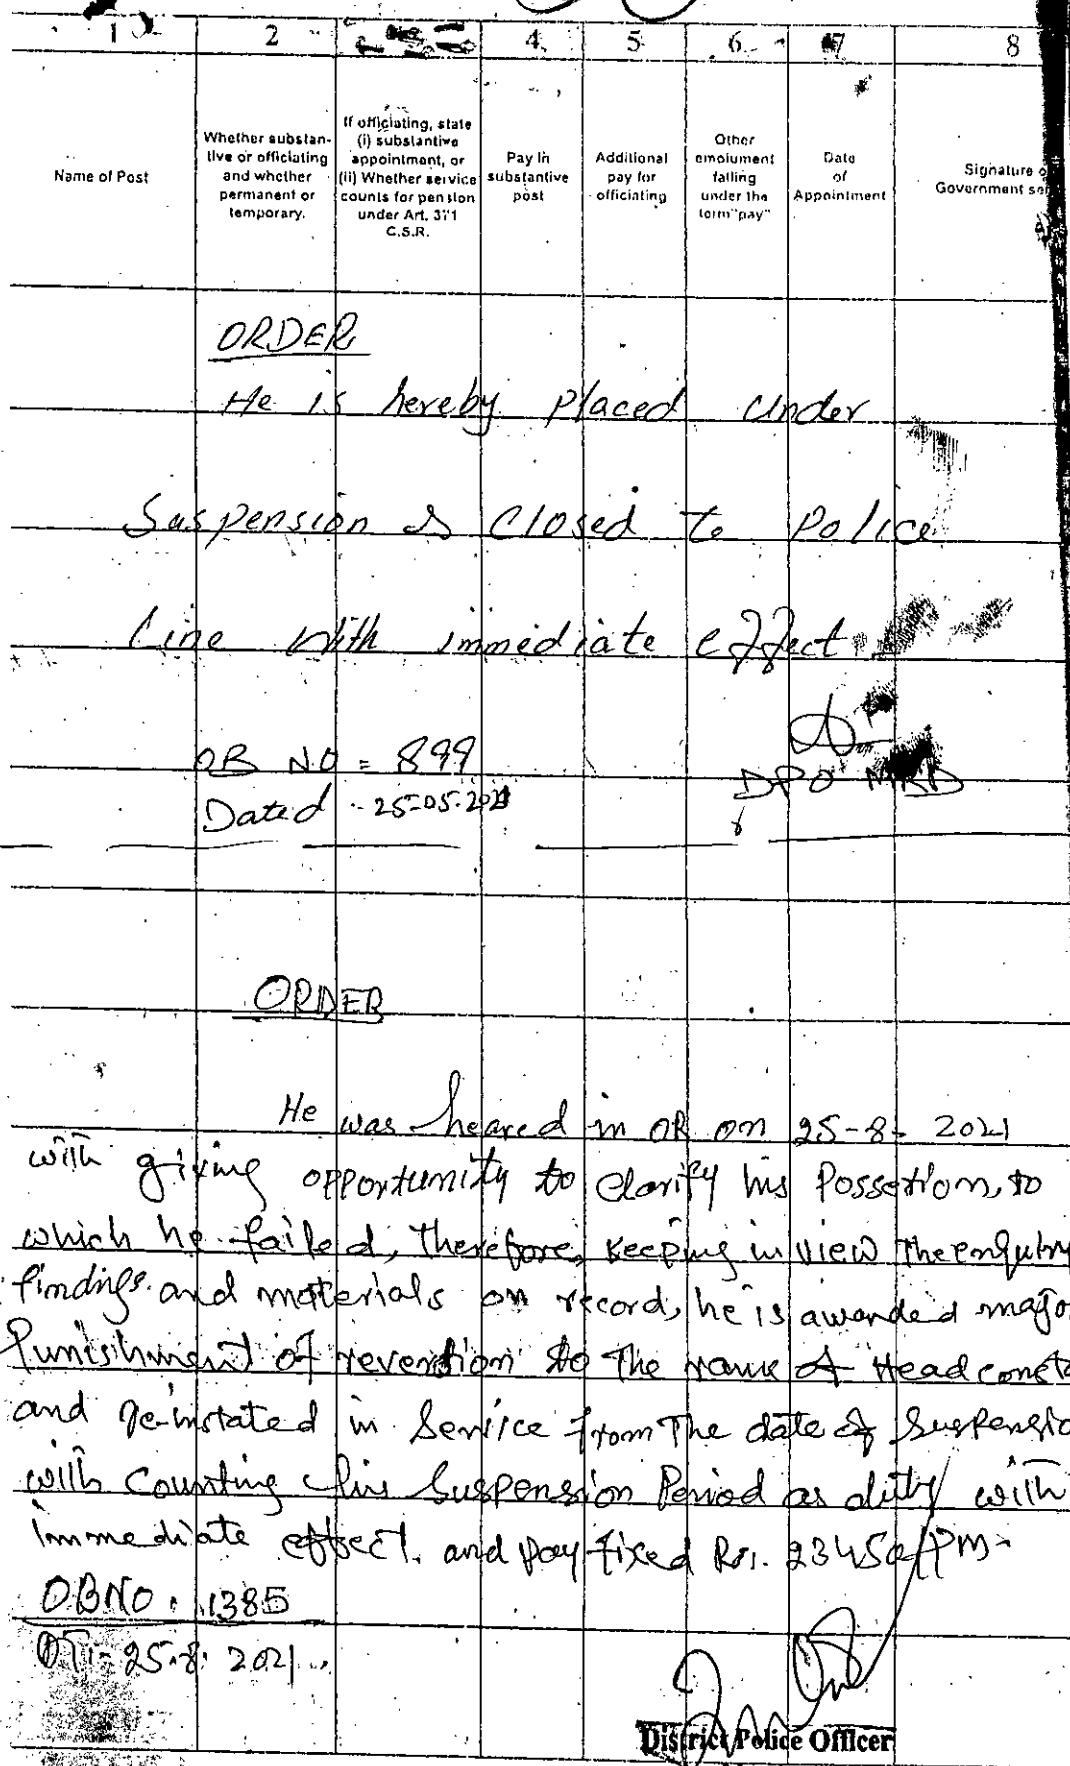 1 2 4 5 6 7 8
Name of Post
Whether substan-
tive or officiating
and whether
permanent or
temporary.
If officiating, state
(i) substantive
appointment, or
(ii) Whether service
counts for pension
under Art. 371
C.S.R.
Pay in
substantive
post
Additional
pay for
officiating
Other
emolument
falling
under the
term "pay"
Date
of
Appointment
Signature
Government
ORDER
He is hereby placed under
Suspension & Closed to Police
Line with immediate effect.
OB NO = 899
Dated 25-05-2021
DPO MRD
ORDER
He was heared in OR on 25-8-2021
with giving opportunity to clarify his Possetion, to
which he failed, therefore, keeping in view the enqutry
findings and materials on record, he is awarded majo
Punishment of reverstion to the rank of Head const
and re-instated in Service from The date of Suspensio
with Counting his Suspension Period as duty with
immediate effect. and pay fixed Rs. 23450/PM-
OBNO. 1385
DT:- 25.8.2021
District Police Officer